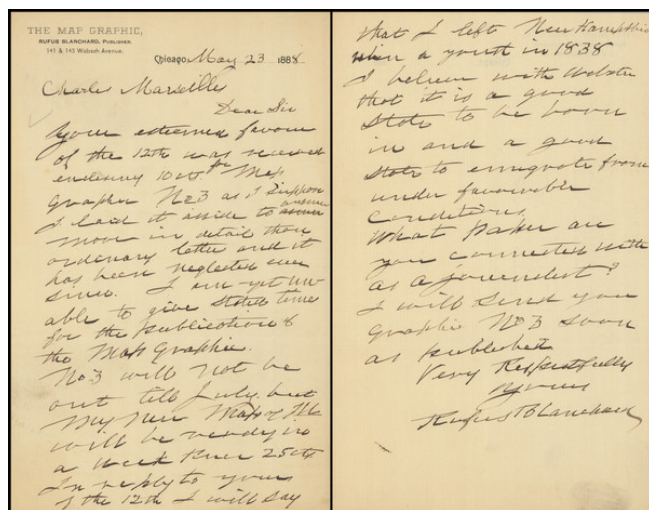 THE MAP GRAPHIC,
RUFUS BLANCHARD, PUBLISHER.
141 & 143 Wabash Avenue.
Chicago, May 23 1888
Charles Marseilles
Dear Sir
Your esteemed favour
of the 12th was received
enclosing 10 cts for Map
Graphic No 3 as I suppose
I laid it aside to answer
more in detail than
ordinary letter and it
has been neglected ever
since. I am yet un
able to give stated time
for the publication of
the Map Graphic.
No 3 will not be
out till July. but
My New Map of Ill
will be ready in
a week Price 25 cts
In reply to yours
of the 12th I will say
that I left New Hampshire
when a youth in 1838
I believe with Webster
that it is a good
State to be born
in and a good
State to emigrate from
under favourable
Condition.
What Paper are
you connected with
as a journalist?
I will send you
Graphic No 3 soon
as published
Very Respectfully
Yours
Rufus Blanchard